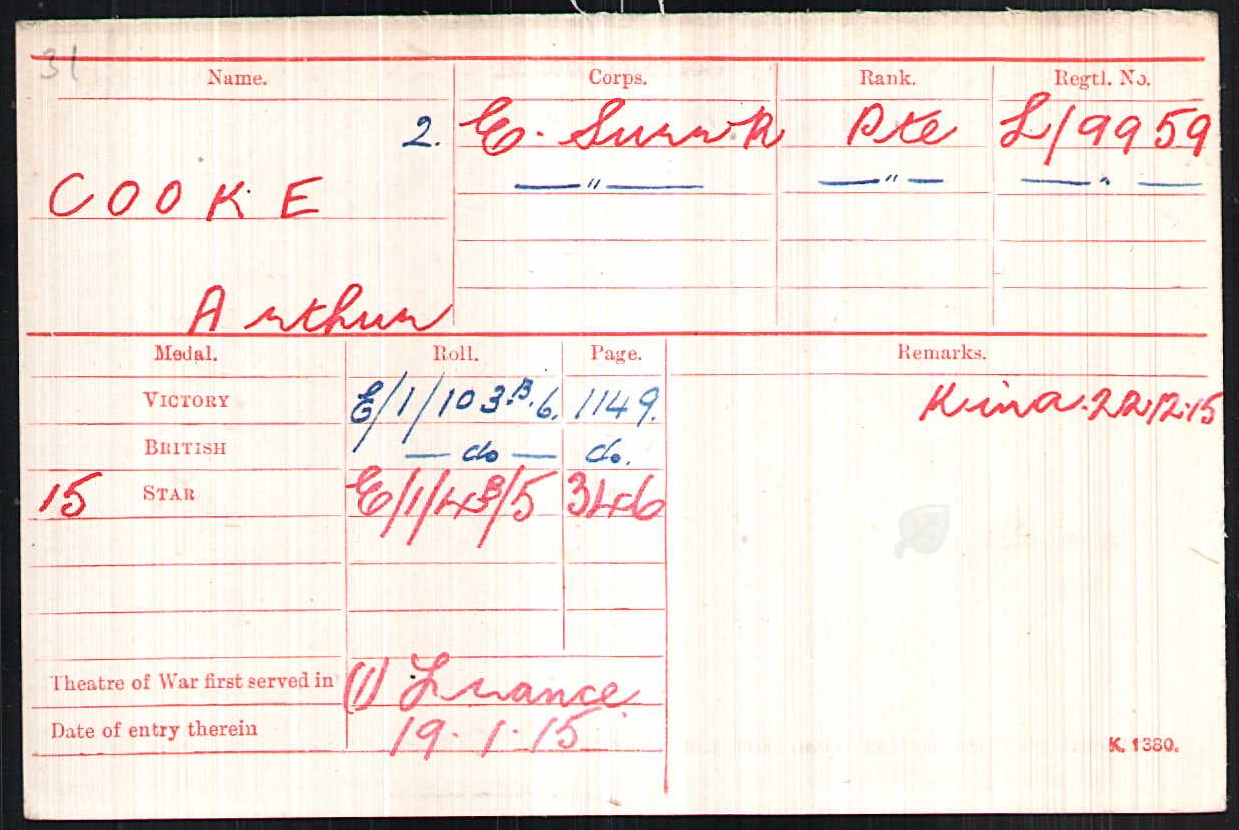 31
Name. Corps. Rank. Regtl. No.
2. E. Surr R Pte L/9959
COOKE —"— —"— —"—
Arthur
Medal. Roll. Page. Remarks.
VICTORY E/1/103B.6. 1149. K in a. 22.12.15
BRITISH — do — do.
15 STAR E/1/4B/5 346
Theatre of War first served in (1) France
Date of entry therein 19.1.15
K. 1380.